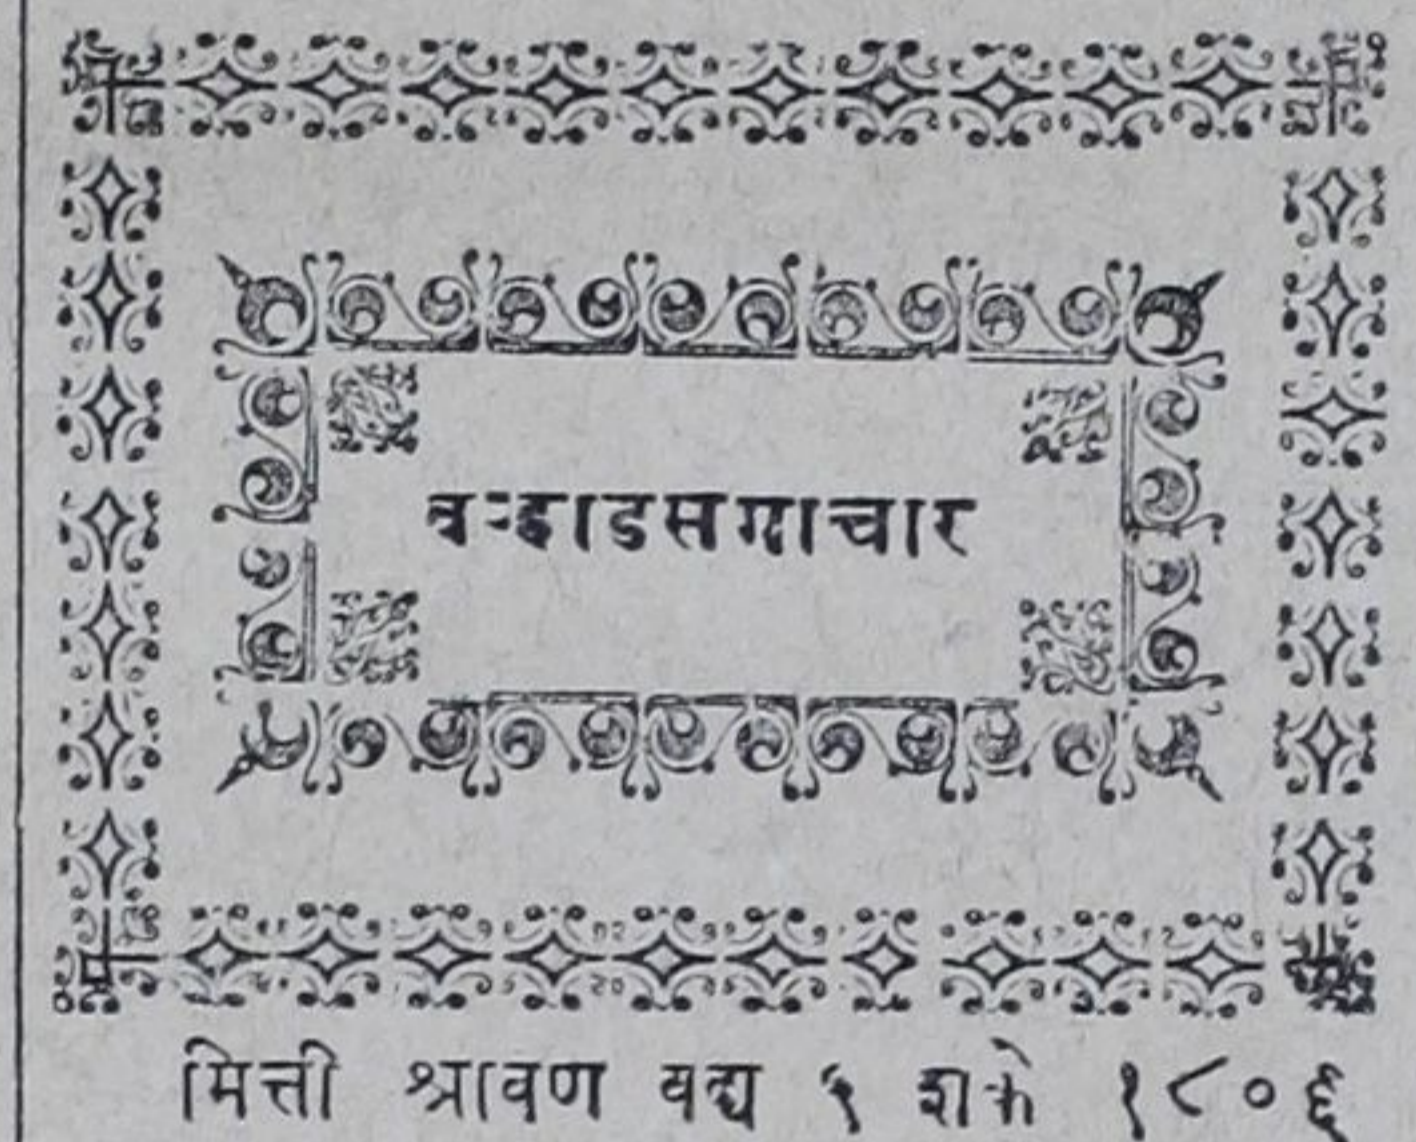 वऱ्हाडसमाचार
मित्ती श्रावण वद्य ६ शके १८०६